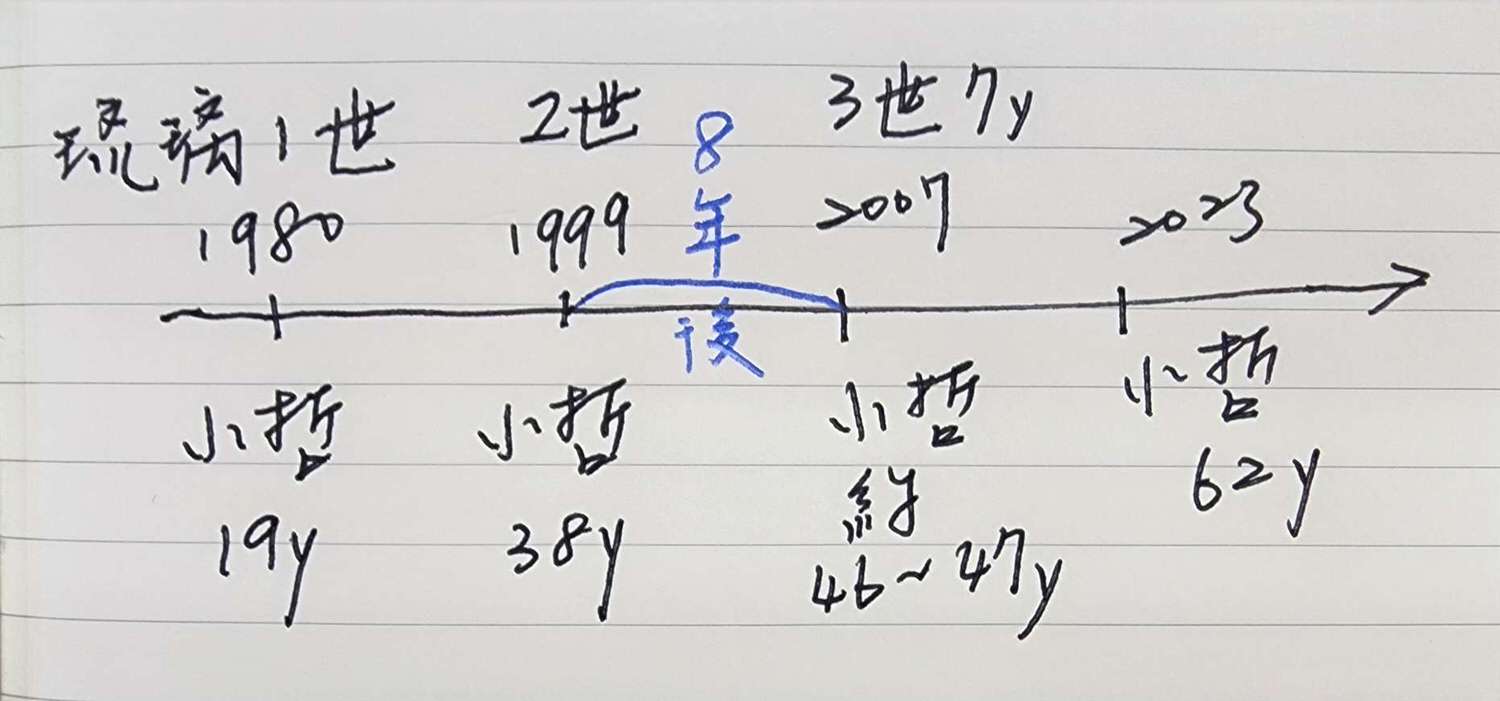 琉璃1世 2世 3世7y
1980 1999 2007 2023
8年後
小哲 小哲 小哲 小哲
19y 38y 約 62y
46~47y